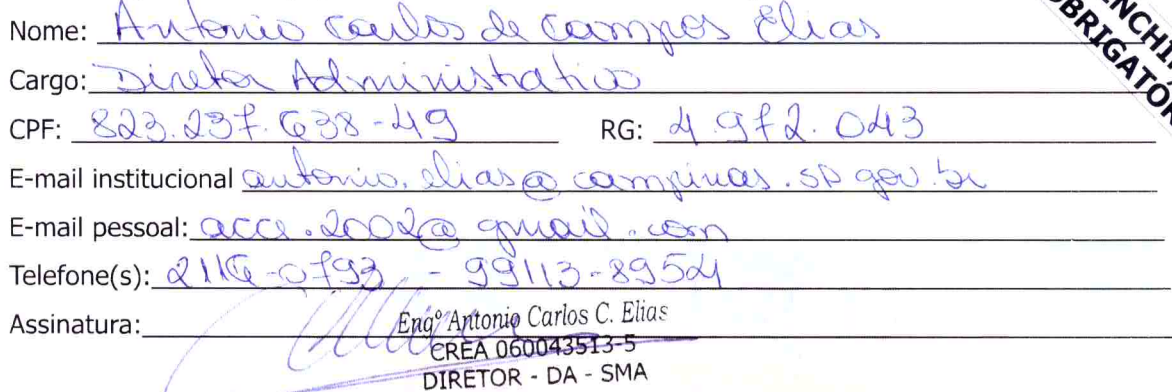 Nome: Antonio Carlos de Campos Elias
Cargo: Diretor Administrativo
CPF: 823.237.638-49 RG: 4.972.043
E-mail institucional antonio.elias@campinas.sp.gov.br
E-mail pessoal: acce.2002@gmail.com
Telefone(s): 2116-0793 - 99113-8954
Assinatura:
Engº Antonio Carlos C. Elias
CREA 060043513-5
DIRETOR - DA - SMA